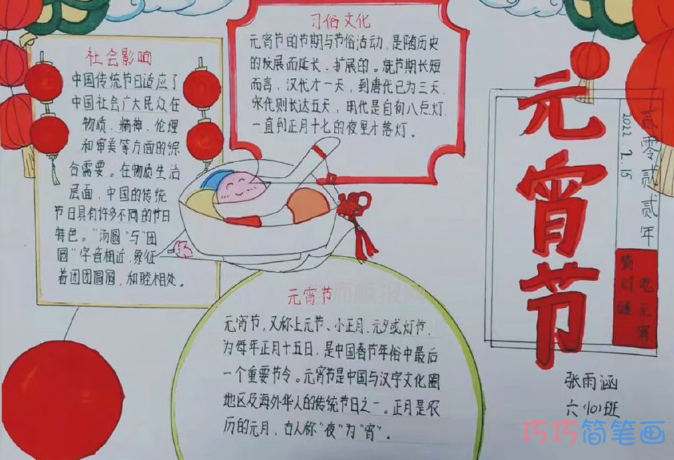 社会影响
中国传统节日适应了
中国社会广大民众在
物质、精神、伦理
和审美等方面的综
合需要。在物质生活
层面,中国的传统
节日具有许多不同的节日
特色。"汤圆"与"团
圆"字音相近,象征
着团团圆圆,和睦相处。
习俗文化
元宵节的节期与节俗活动,是随历史
的发展而延长、扩展的。就节期长短
而言,汉代才一天,到唐代已为三天,
宋代则长达五天,明代是自初八点灯,
一直到正月十七的夜里才落灯。
元宵节
元宵节,又称上元节、小正月、元夕或灯节,
为每年正月十五日,是中国春节年俗中最后
一个重要节令。元宵节是中国与汉字文化圈
地区及海外华人的传统节日之一。正月是农
历的元月,古人称"夜"为"宵"。
元宵节
贰零贰贰年
2022 2.15
吃元宵
猜灯谜
张雨涵
六(10)班
巧巧简笔画